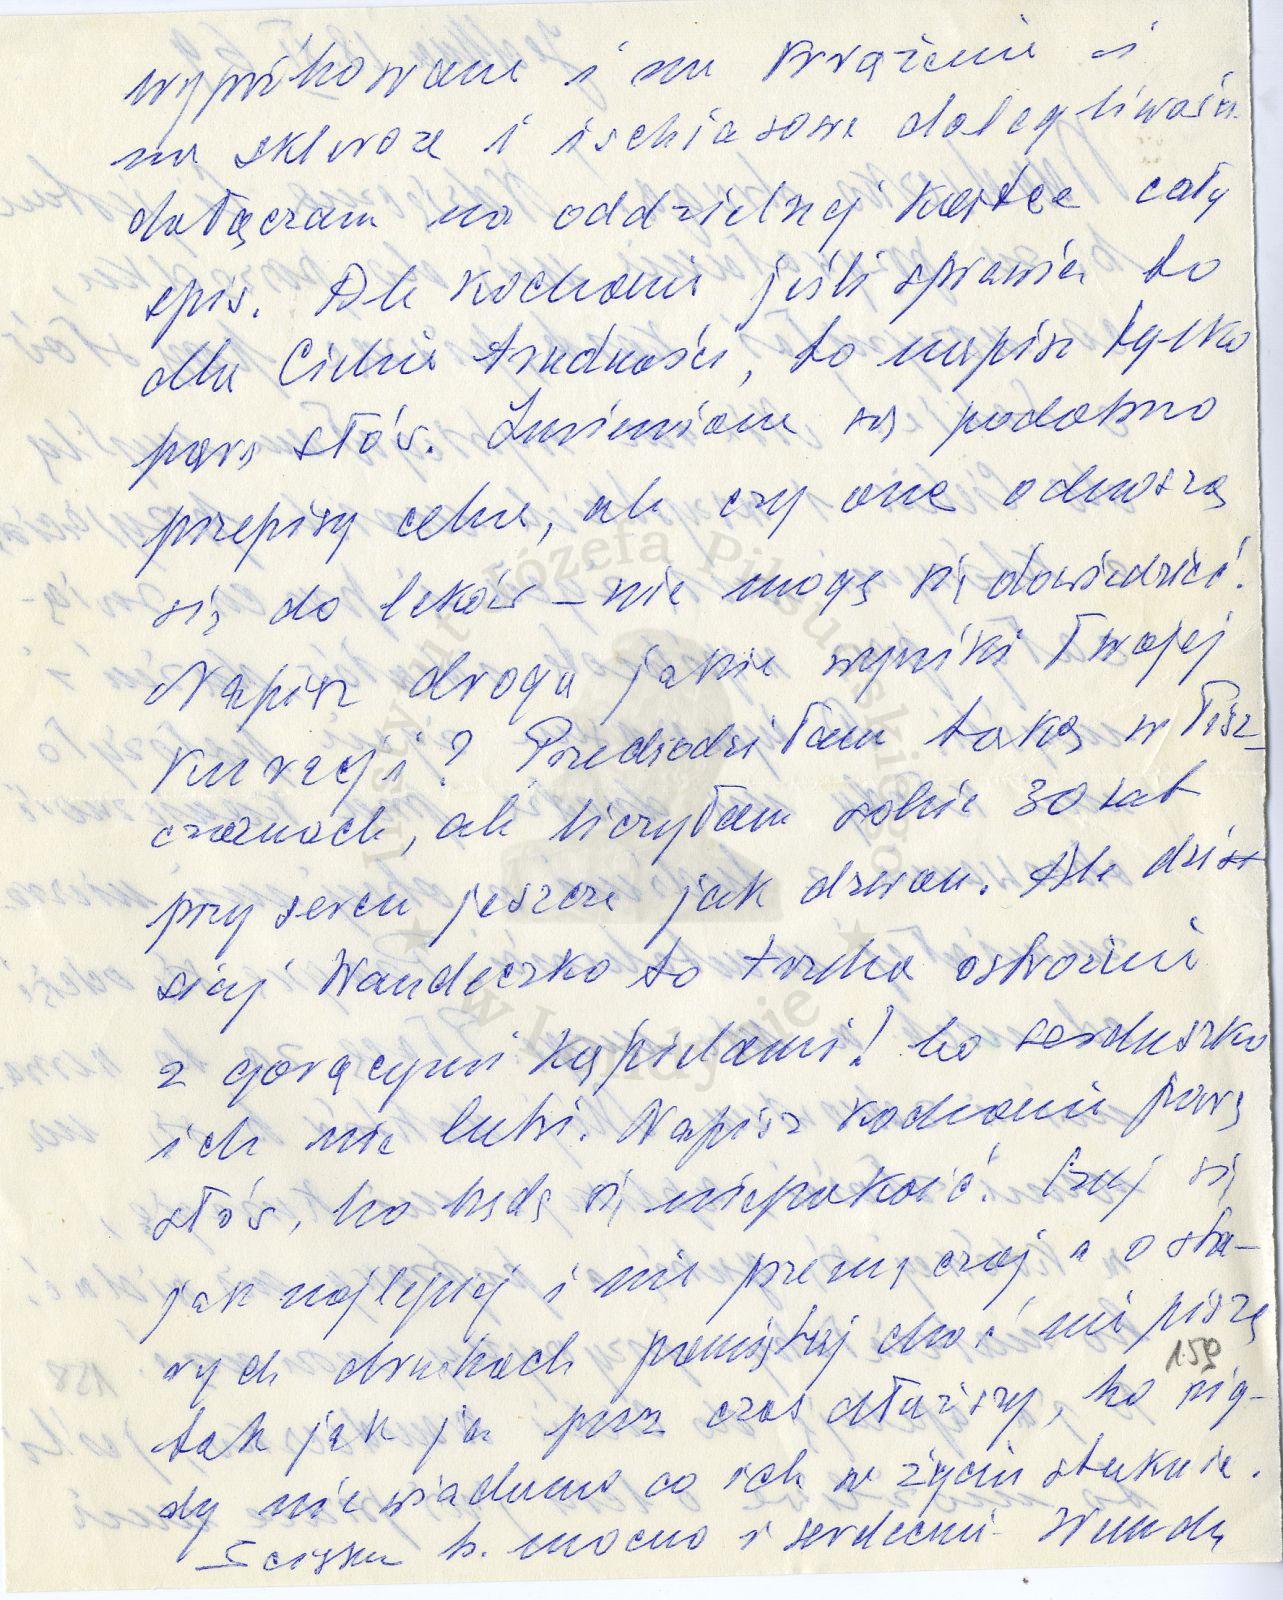 wypróbowane i na krążenie i
na sklerozę i ischiasowe dolegliwości
dołączam na oddzielnej kartce cały
spis. Ale kochanie jeśli sprawia to
dla Ciebie trudności, to napisz tylko
parę słów. Zmienione są podobno
przepisy celne, ale czy one odnoszą
się do leków – nie mogę się dowiedzieć.
Napisz droga jakie wyniki Twojej
kuracji? Przechodziłam taką w Pisz-
czanach, ale liczyłam sobie 30 lat
przy sercu jeszcze jak dzwon. Ale dzi-
siaj Wandeczko to trzeba ostrożnie
z gorącymi kąpielami! bo serduszko
ich nie lubi. Napisz kochanie parę
słów, bo będę się niepokoić. Czuj się
jak najlepiej i nie przemęczaj a o sta-
rych druhach pamiętaj choć nie piszą
159
tak jak ja przez czas dłuższy, bo nig-
dy nie wiadomo co ich w życiu stuknie.
Ściskam b. mocno i serdecznie Wanda
Instytut Józefa Piłsudskiego
w Londynie